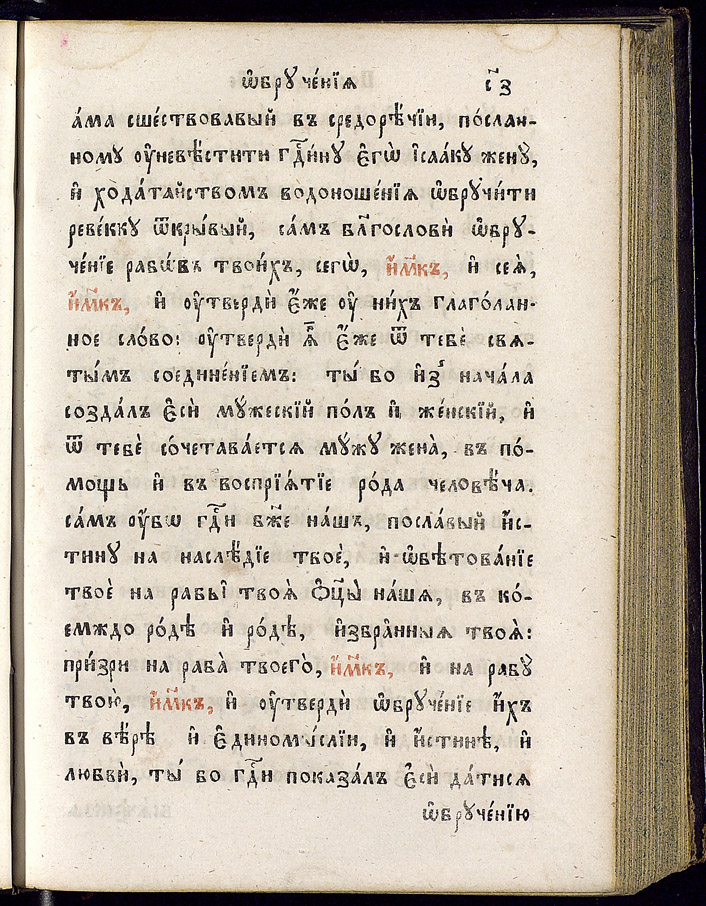 ѡ҆брꙋче́нїѧ с҃з
а́ма сше́ствовавый въ средорѣ́чїи, по́слан-
номꙋ ᲂу҆невѣ́стити гдⷭ҇и́нꙋ є҆гѡ̀ і҆саа́кꙋ женꙋ̀,
и҆ хода́тайствомъ водоноше́нїѧ ѡ҆брꙋчи́ти
реве́ккꙋ ѿкры́вый, са́мъ бл҃гословѝ ѡ҆брꙋ-
че́нїе рабѡ́въ твои́хъ, сегѡ̀, и҆́м҃къ, и҆ сеѧ̀,
и҆́м҃къ, и҆ ᲂу҆твердѝ є҆́же ᲂу҆ ни́хъ глаго́лан-
ное сло́во: ᲂу҆твердѝ ѧ҆̀ є҆́же ѿ тебѐ свѧ-
ты́мъ соедине́нїемъ: ты́ бо и҆з̾ нача́ла
созда́лъ є҆сѝ мꙋ́жескїй по́лъ и҆ же́нскїй, и҆
ѿ тебѐ со́четава́етсѧ мꙋ́жꙋ жена̀, въ по́-
мощь и҆ въ воспрїѧ́тїе ро́да человѣ́ча.
са́мъ ᲂу҆́бѡ гдⷭ҇и бж҃е на́шъ, посла́вый и҆́с-
тинꙋ на наслѣ́дїе твоѐ, и҆ ѡ҆бѣтова́нїе
твоѐ на рабы̑ твоѧ̑ ѻ҆ц҃ы̀ на́шѧ, въ ко́-
емждо ро́дѣ и҆ ро́дѣ, и҆збра̑нныѧ твоѧ̑:
при́зри на раба̀ твоего̀, и҆́м҃къ, и҆ на рабꙋ̀
твою̀, и҆́м҃къ, и҆ ᲂу҆твердѝ ѡ҆брꙋче́нїе и҆́хъ
въ вѣ́рѣ и҆ є҆диномы́слїи, и҆ и҆́стинѣ, и҆
любвѝ, ты́ бо гдⷭ҇и показа́лъ є҆сѝ да́тисѧ
ѡ҆брꙋче́нїю